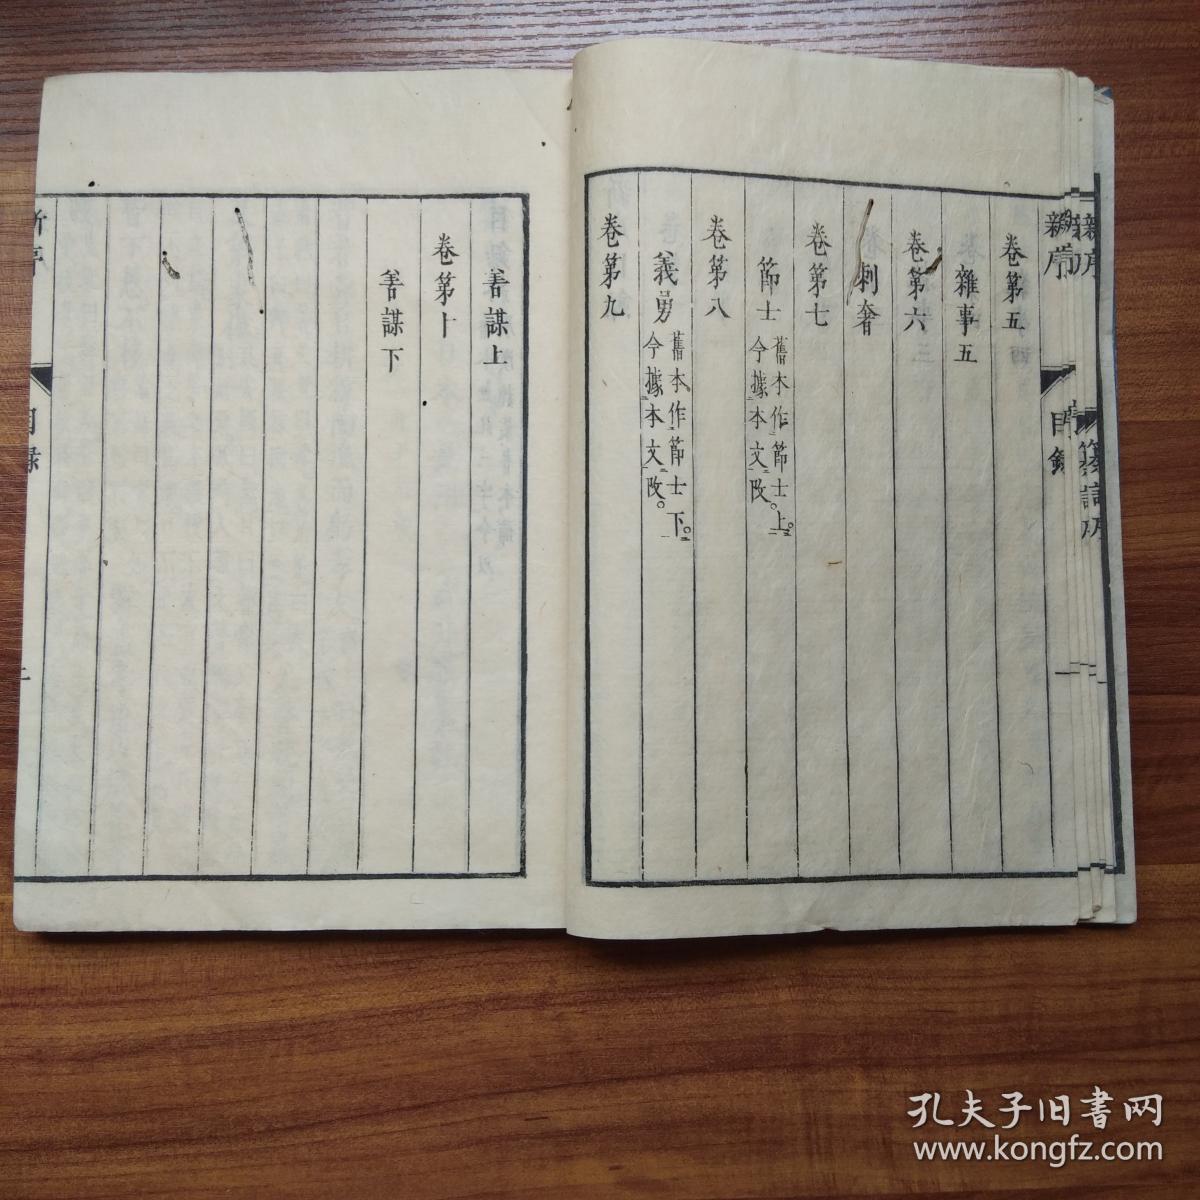 新序
目錄
一
卷第五
雜事五
卷第六
刺奢
卷第七
節士
舊本作節士上。
今據本文改。
卷第八
義勇
舊本作節士下。
今據本文改。
卷第九
善謀上
卷第十
善謀下
新序
目錄
新序
纂註序
孔夫子旧書网
www.kongfz.com